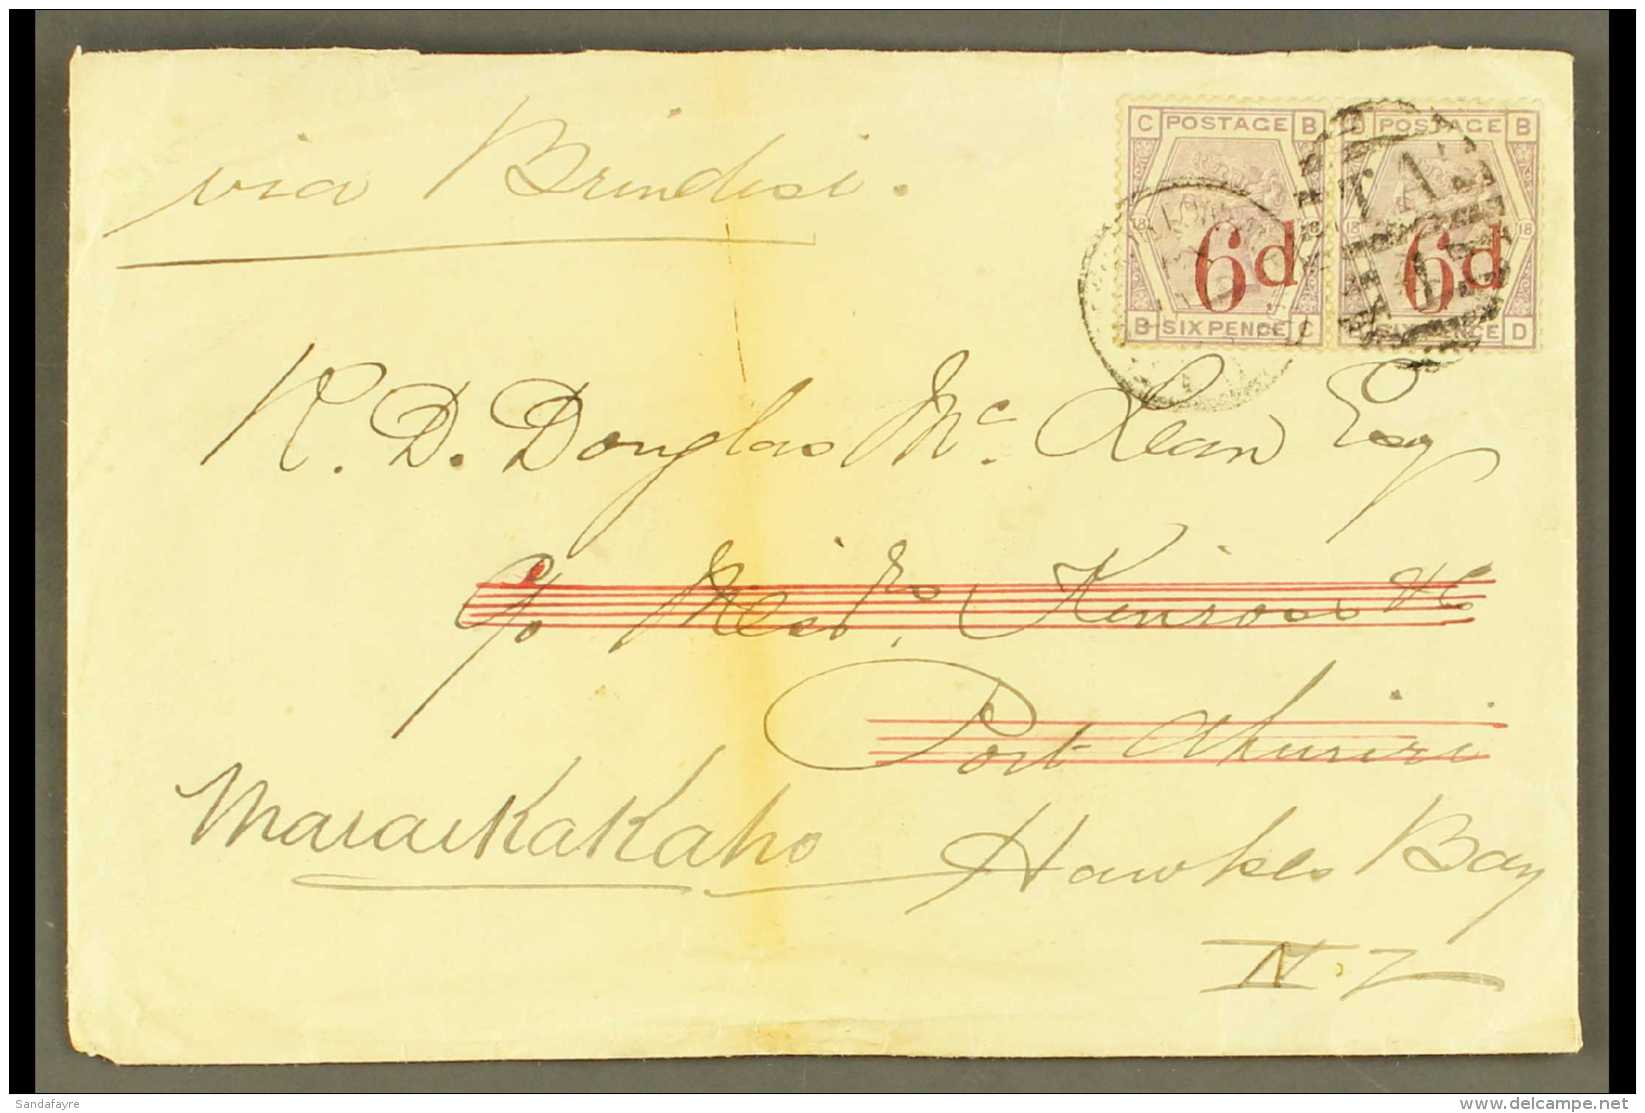 via Brindisi.
C POSTAGE B
D POSTAGE B
18 18
18 18
6d
6d
B SIX PENCE C
SIX PENCE D
R. D. Douglas McLean Esq
c/o Messrs. Kinross & Co
Port Ahuriri
Maraekakaho Hawkes Bay
N.Z
Sandafayre
delcampe.net